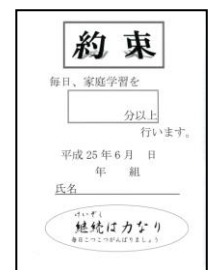 約 束
毎日、家庭学習を
分以上
行います。
平成 25 年 6 月　日
年　組
氏名
けいぞく
継続は力なり
毎日こつこつがんばりましょう